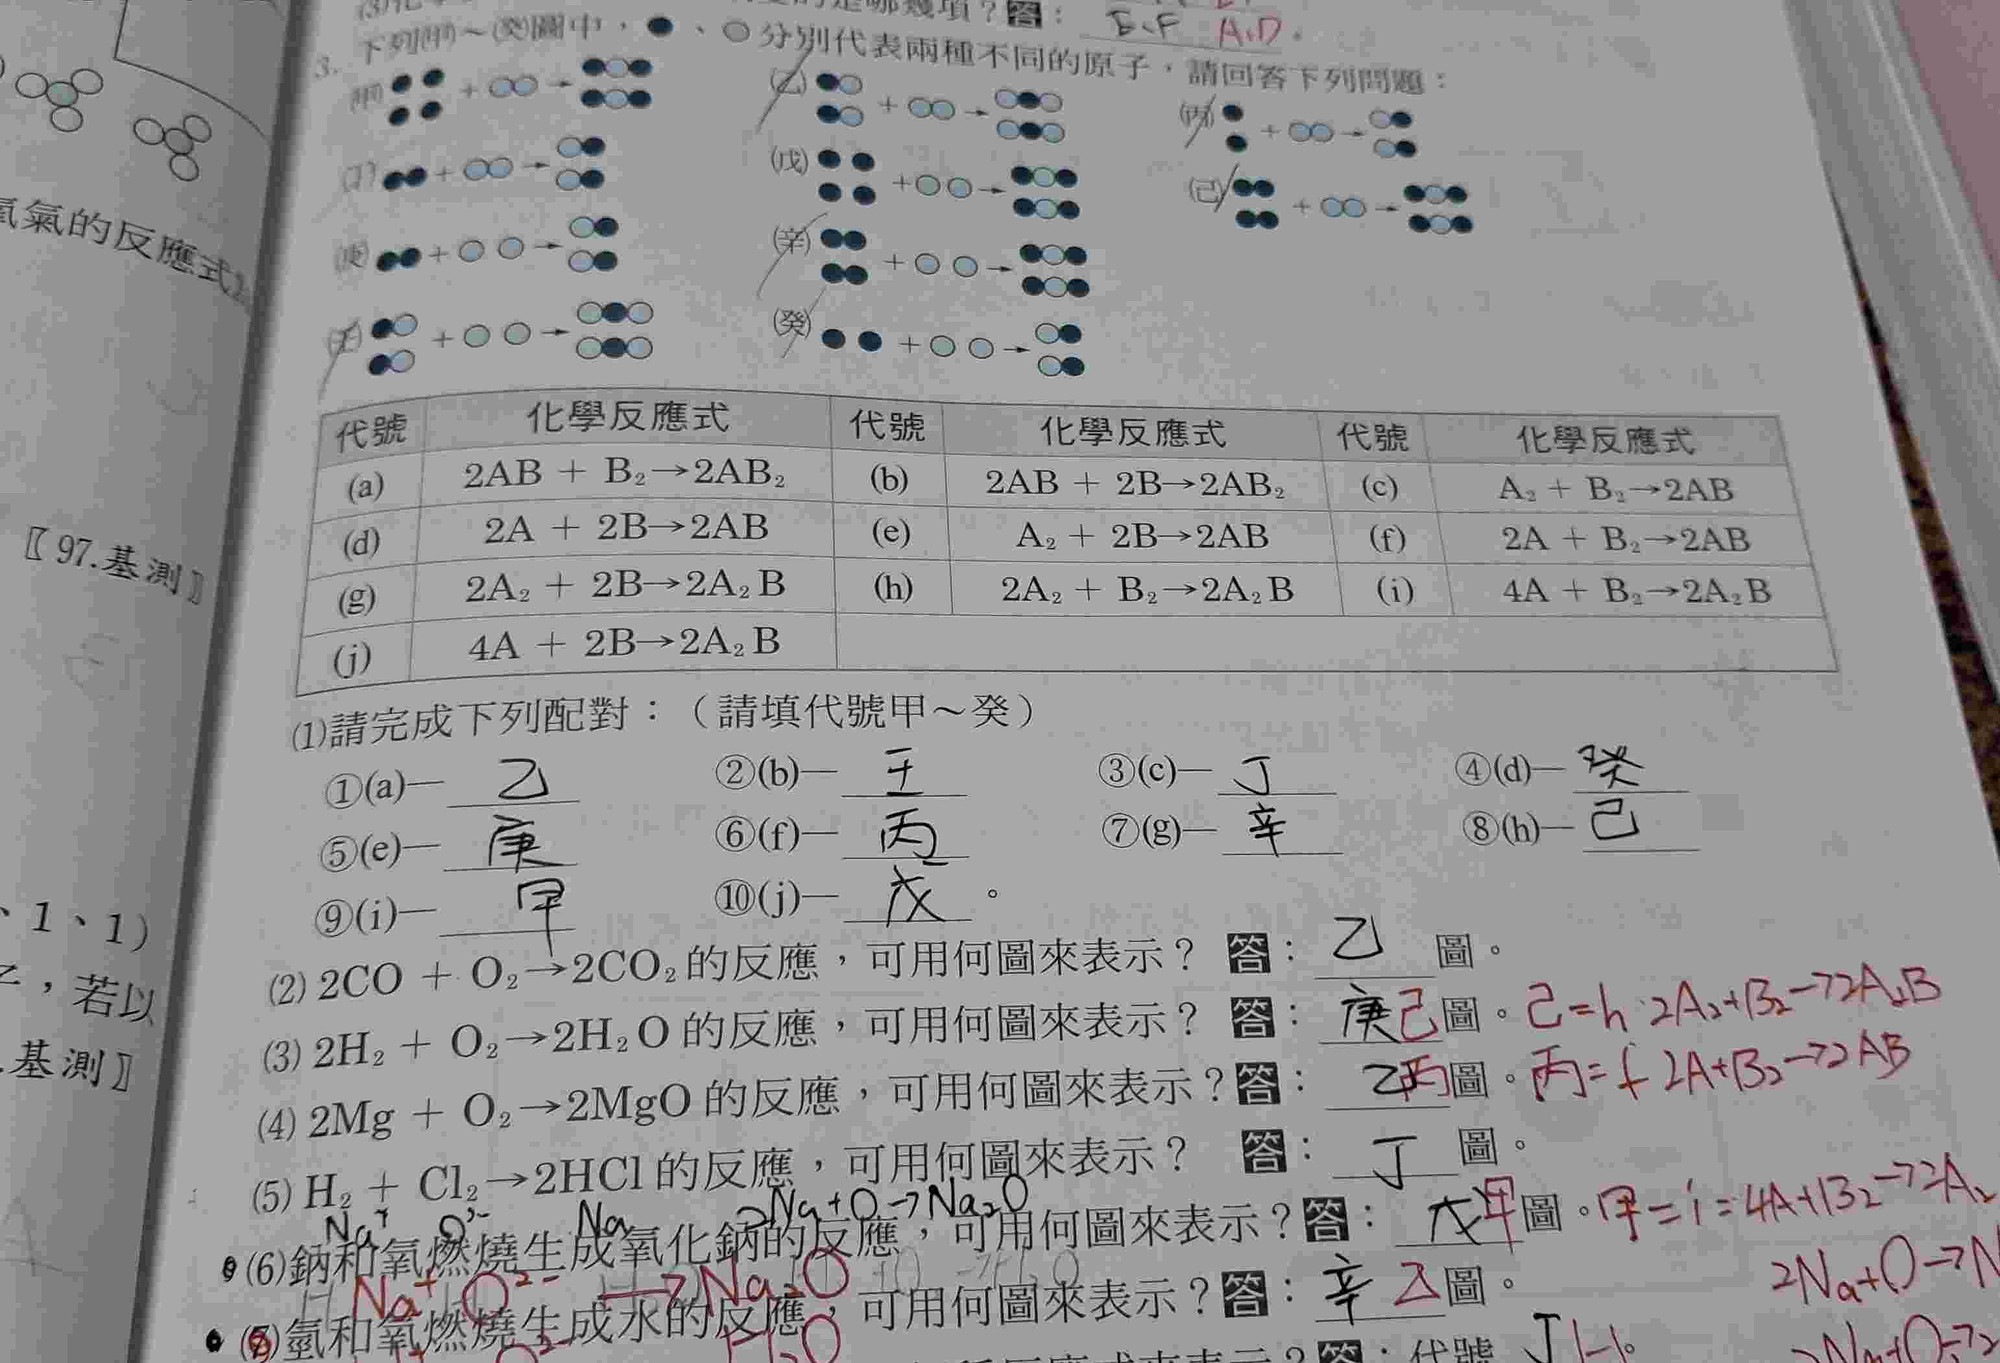 哪幾項？答：E、F A、D。
3. 下列(甲)～(癸)圖中，●、○分別代表兩種不同的原子，請回答下列問題：
(甲) + → (乙) + → (丙) + →
(丁) + → (戊) + → (己) + →
(庚) + → (辛) + →
(壬) + → (癸) + →
氧氣的反應式
代號 化學反應式 代號 化學反應式 代號 化學反應式
(a) 2AB + B₂→2AB₂ (b) 2AB + 2B→2AB₂ (c) A₂ + B₂→2AB
(d) 2A + 2B→2AB (e) A₂ + 2B→2AB (f) 2A + B₂→2AB
(g) 2A₂ + 2B→2A₂B (h) 2A₂ + B₂→2A₂B (i) 4A + B₂→2A₂B
(j) 4A + 2B→2A₂B
〖97.基測〗
(1)請完成下列配對：（請填代號甲～癸）
①(a)— 乙 ②(b)— 壬 ③(c)— 丁 ④(d)— 癸
⑤(e)— 庚 ⑥(f)— 丙 ⑦(g)— 辛 ⑧(h)— 己
⑨(i)— 甲 ⑩(j)— 戊 。
、1、1)
，若以
基測〗
(2) 2CO + O₂→2CO₂的反應，可用何圖來表示？ 答： 乙 圖。
(3) 2H₂ + O₂→2H₂O的反應，可用何圖來表示？ 答： 庚己圖。己=h 2A₂+B₂→2A₂B
(4) 2Mg + O₂→2MgO的反應，可用何圖來表示？答： 乙丙圖。丙=f 2A+B₂→2AB
(5) H₂ + Cl₂→2HCl的反應，可用何圖來表示？ 答： 丁 圖。
Na⁺ O²⁻ Na 2Na+O→Na₂O
(6)鈉和氧燃燒生成氧化鈉的反應，可用何圖來表示？答： 戊甲圖。甲=i=4A+B₂→2A₂
Na⁺ O²⁻ →Na₂O
2Na+O→N
氫和氧燃燒生成水的反應，可用何圖來表示？答： 辛 圖。
答：代號